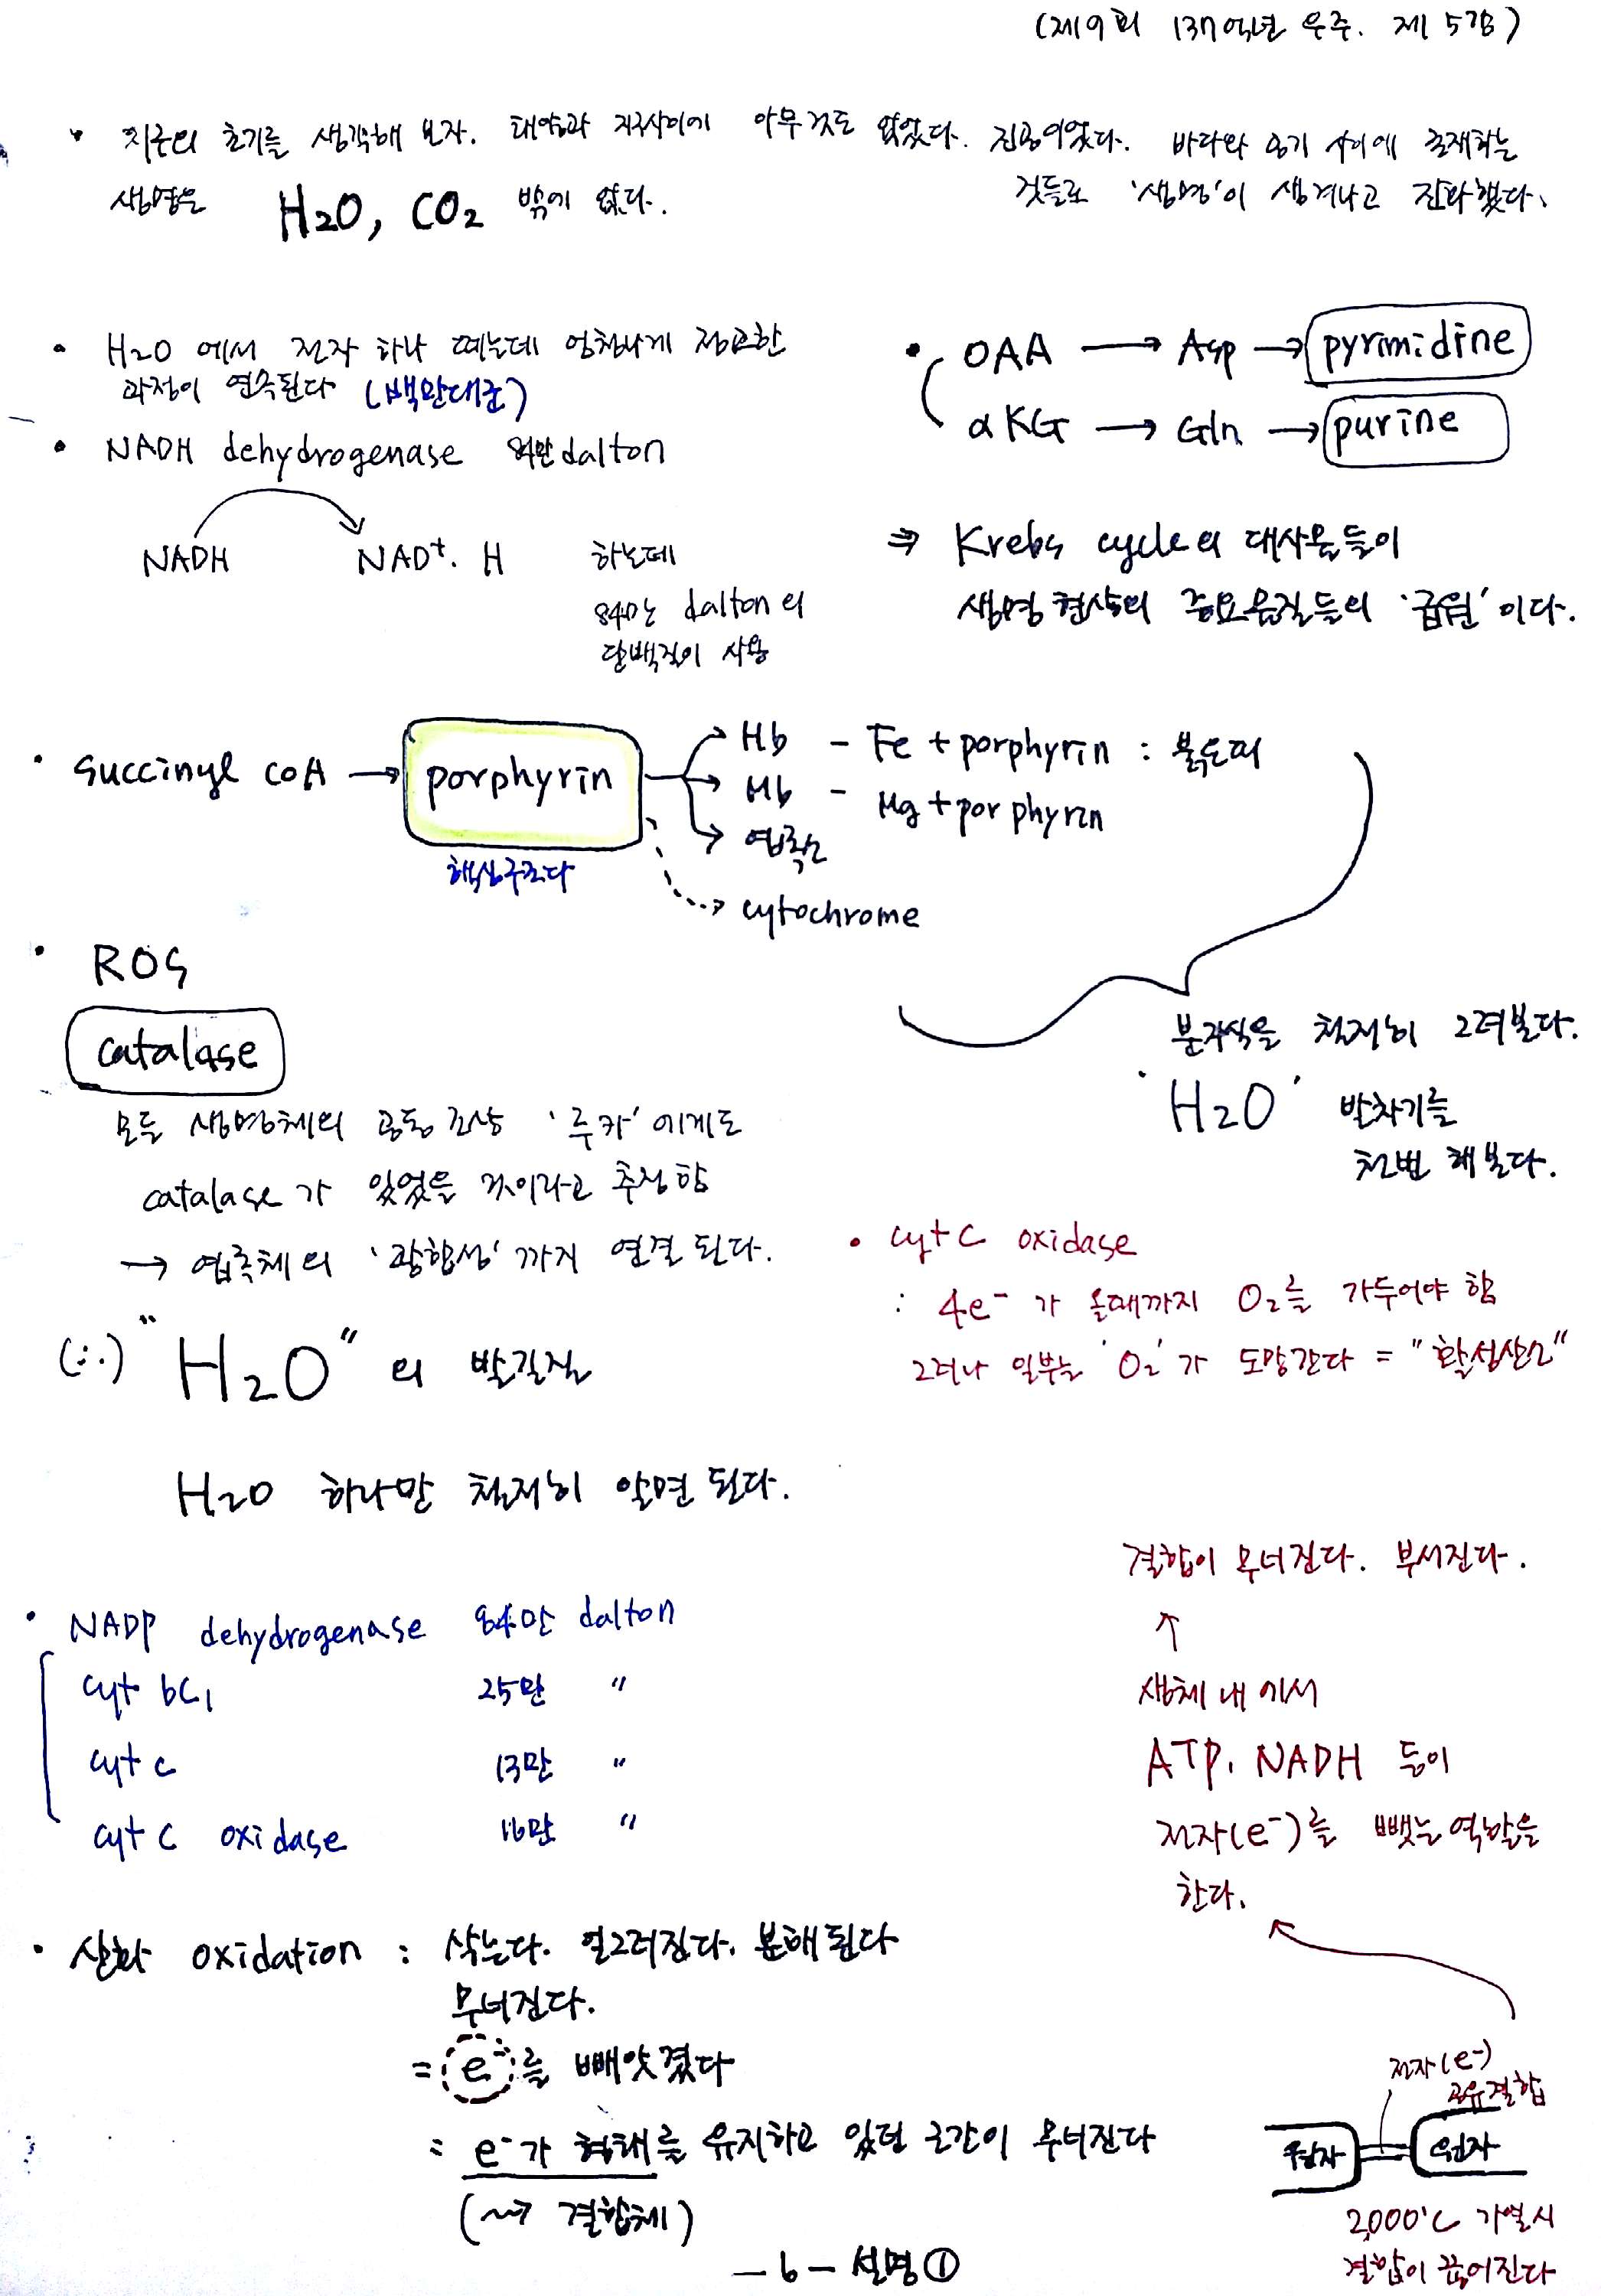 (제9회 137억년 우주. 제 5강)
• 지구의 초기를 생각해 보자. 태양과 지구사이에 아무것도 없었다. 진공이었다. 바다와 공기 사이에 존재하는
생명은 H₂O, CO₂ 밖에 없다.
것들로 '생명'이 생겨나고 진화했다.
• H₂O 에서 전자 하나 떼는데 엄청나게 정교한
과정이 연속된다 (백만대군)
• NADH dehydrogenase 84만 dalton
NADH → NAD⁺. H 하는데
84만 dalton의
단백질이 사용
• OAA → Asp → pyrimidine
αKG → Gln → purine
⇒ Krebs cycle의 대사물들이
생명현상의 중요물질들의 '급원'이다.
• succinyl coA → porphyrin
핵심구조다
Hb - Fe + porphyrin : 붉은피
Mb - Mg + porphyrin
엽록소
cytochrome
분자식을 철저히 그려본다.
'H₂O' 발차기를
천번 해본다.
• ROS
catalase
모든 생명체의 공통조상 '루카'에게도
catalase가 있었을 것이라고 추정함
→ 엽록체의 '광합성'까지 연결된다.
(∴) "H₂O"의 발길질
H₂O 하나만 철저히 알면 된다.
• cyt C oxidase
: 4e⁻가 올때까지 O₂를 가두어야 함
그러나 일부는 'O₂'가 도망간다 = "활성산소"
• NADP dehydrogenase 84만 dalton
cyt bc₁ 25만 "
cyt c 13만 "
cyt C oxidase 16만 "
결합이 무너진다. 부서진다.
↑
생체 내에서
ATP, NADH 등이
전자(e⁻)를 뺏는 역할을
한다.
• 산화 oxidation : 삭는다. 일그러진다. 분해된다
무너진다.
= e⁻를 빼앗겼다
= e⁻가 형태를 유지하고 있던 공간이 무너진다
(⇝ 결합체)
전자(e⁻)
공유결합
원자 = 원자
2,000℃ 가열시
결합이 끊어진다
- 6 - 설명①